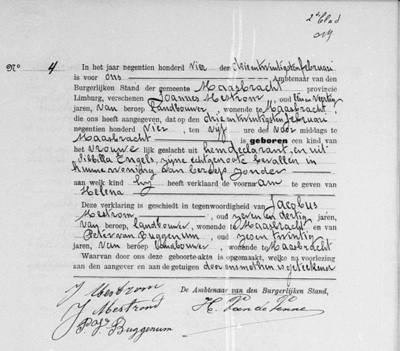 2e Blad
No 4
In het jaar negentien honderd vier den drieentwintigsten februari
is voor ons Ambtenaar van den
Burgerlijken Stand der gemeente Maasbracht provincie
Limburg, verschenen Joannes Mestrom, oud veertig
jaren, van beroep Landbouwer, wonende te Maasbracht,
die ons heeft aangegeven, dat op den drieentwintigsten februari
negentien honderd vier, ten vijf ure des voor middags te
Maasbracht is geboren een kind van
het vrouwelijk geslacht uit hem declarant, en uit
Sibilla Engels, zijne echtgenoote bevallen in
hunne woning van beroep zonder
aan welk kind hij heeft verklaard de voornaam te geven van
Helena
Deze verklaring is geschied in tegenwoordigheid van Jacobus
Mestrom, oud zeven en dertig jaren,
van beroep, landbouwer, wonende te Maasbracht en van
Peter van Buggenum, oud zeven twintig
jaren, van beroep landbouwer, wonende te Maasbracht
Waarvan door ons deze geboorte-akte is opgemaakt, welke na voorlezing
aan den aangever en aan de getuigen door ons met hen is geteekend
De Ambtenaar van den Burgerlijken Stand,
J Mestrom
J Mestrom
Buggenum
H.